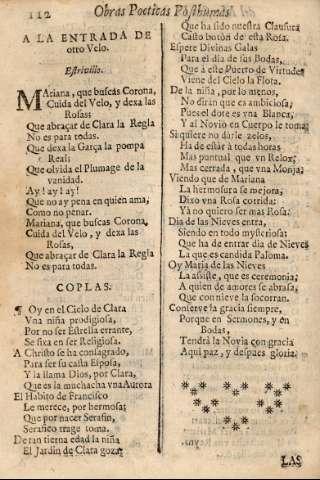 112
Obras Poeticas Posthumas
A LA ENTRADA DE
otro Velo.
Estrivillo.
MAriana, que buscas Corona,
Cuida del Velo, y dexa las
Rosas;
Que abraçar de Clara la Regla
No es para todas.
Que dexa la Garça la pompa
Real;
Que olvida el Plumage de la
vanidad.
Ay! ay! ay!
Que no ay pena en quien ama,
Como no penar.
Mariana, que buscas Corona,
Cuida del Velo, y dexa las
Rosas,
Que abraçar de Clara la Regla
No es para todas.
COPLAS.
¶ Oy en el Cielo de Clara
Vna niña prodigiosa,
Por no ser Estrella errante,
Se fixa en ser Religiosa.
A Christo se ha consagrado,
Para ser su casta Esposa,
Y la llama Dios, por Clara,
Que es la muchacha vna Aurora
El Habito de Francisco
Le merece, por hermosa;
Que por nacer Serafin,
Serafico trage toma.
De tan tierna edad la niña
El Jardin de Clara goza;
Que ha sido nuestra Clausura
Casto boton de esta Rosa.
Espere Divinas Galas
Para el dia de sus Bodas,
Que à este Puerto de Virtudes
Viene del Cielo la Flota.
De la niña, por lo menos,
No diràn que es ambiciosa;
Pues el dote es vna Blanca,
Y al Novio en Cuerpo le toma.
Si quiere no darle zelos,
Ha de estàr à todas horas
Mas puntual que vn Relox,
Mas cerrada, que vna Monja.
Viendo que de Mariana
La hermosura se mejora,
Dixo vna Rosa corrida:
Yà no quiero ser mas Rosa.
Dia de las Nieves entra,
Siendo en todo mysteriosa:
Que ha de entrar dia de Nieves
La que es candida Paloma.
Oy Maria de las Nieves
La assiste, que es ceremonia;
A quien de amores se abrasa,
Que con nieve la socorran.
Conserve la gracia siempre,
Porque en Sermones, y en
Bodas,
Tendrà la Novia con gracia
Aqui paz, y despues gloria.
LAS